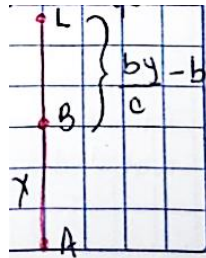 L
by/c - b
B
x
A